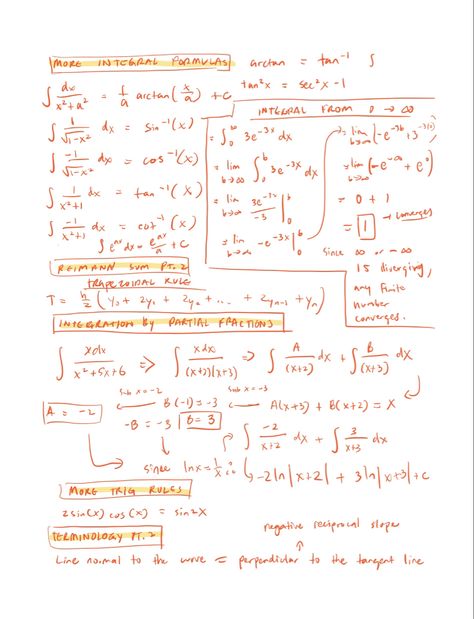 MORE INTEGRAL FORMULAS
arctan = tan⁻¹
tan²x = sec²x - 1
∫ dx/(x²+a²) = 1/a arctan(x/a) + C
∫ 1/√(1-x²) dx = sin⁻¹(x)
∫ -1/√(1-x²) dx = cos⁻¹(x)
∫ 1/(x²+1) dx = tan⁻¹(x)
∫ -1/(x²+1) dx = cot⁻¹(x)
∫ e^(ax) dx = e^(ax)/a + C
INTEGRAL FROM 0 → ∞
= ∫₀^∞ 3e^(-3x) dx
= lim b→∞ ∫₀^b 3e^(-3x) dx
= lim b→∞ 3e^(-3x)/-3 |₀^b
= lim b→∞ -e^(-3x) |₀^b
= lim b→∞ (-e^(-3b) +
= lim b→∞ (-e^(-∞) + e⁰)
= 0 + 1
= 1 → converges
since ∞ or -∞
is diverging,
any finite
number
converges.
REIMANN SUM PT. 2
TRAPEZOIDAL RULE
T = h/2 (y₀ + 2y₁ + 2y₂ + ... + 2yₙ₋₁ + yₙ)
INTEGRATION BY PARTIAL FRACTIONS
∫ xdx/(x²+5x+6) => ∫ xdx/((x+2)(x+3)) => ∫ A/(x+2) dx + ∫ B/(x+3) dx
sub x=-2
sub x=-3
A = -2 ← B(-1) = -3 ← A(x+3) + B(x+2) = x
-B = -3 B = 3
∫ -2/(x+2) dx + ∫ 3/(x+3) dx
since ln x = 1/x
-2 ln|x+2| + 3 ln|x+3| + C
MORE TRIG RULES
2sin(x)cos(x) = sin2x
TERMINOLOGY PT. 2
negative reciprocal slope
↑
Line normal to the curve = perpendicular to the tangent line